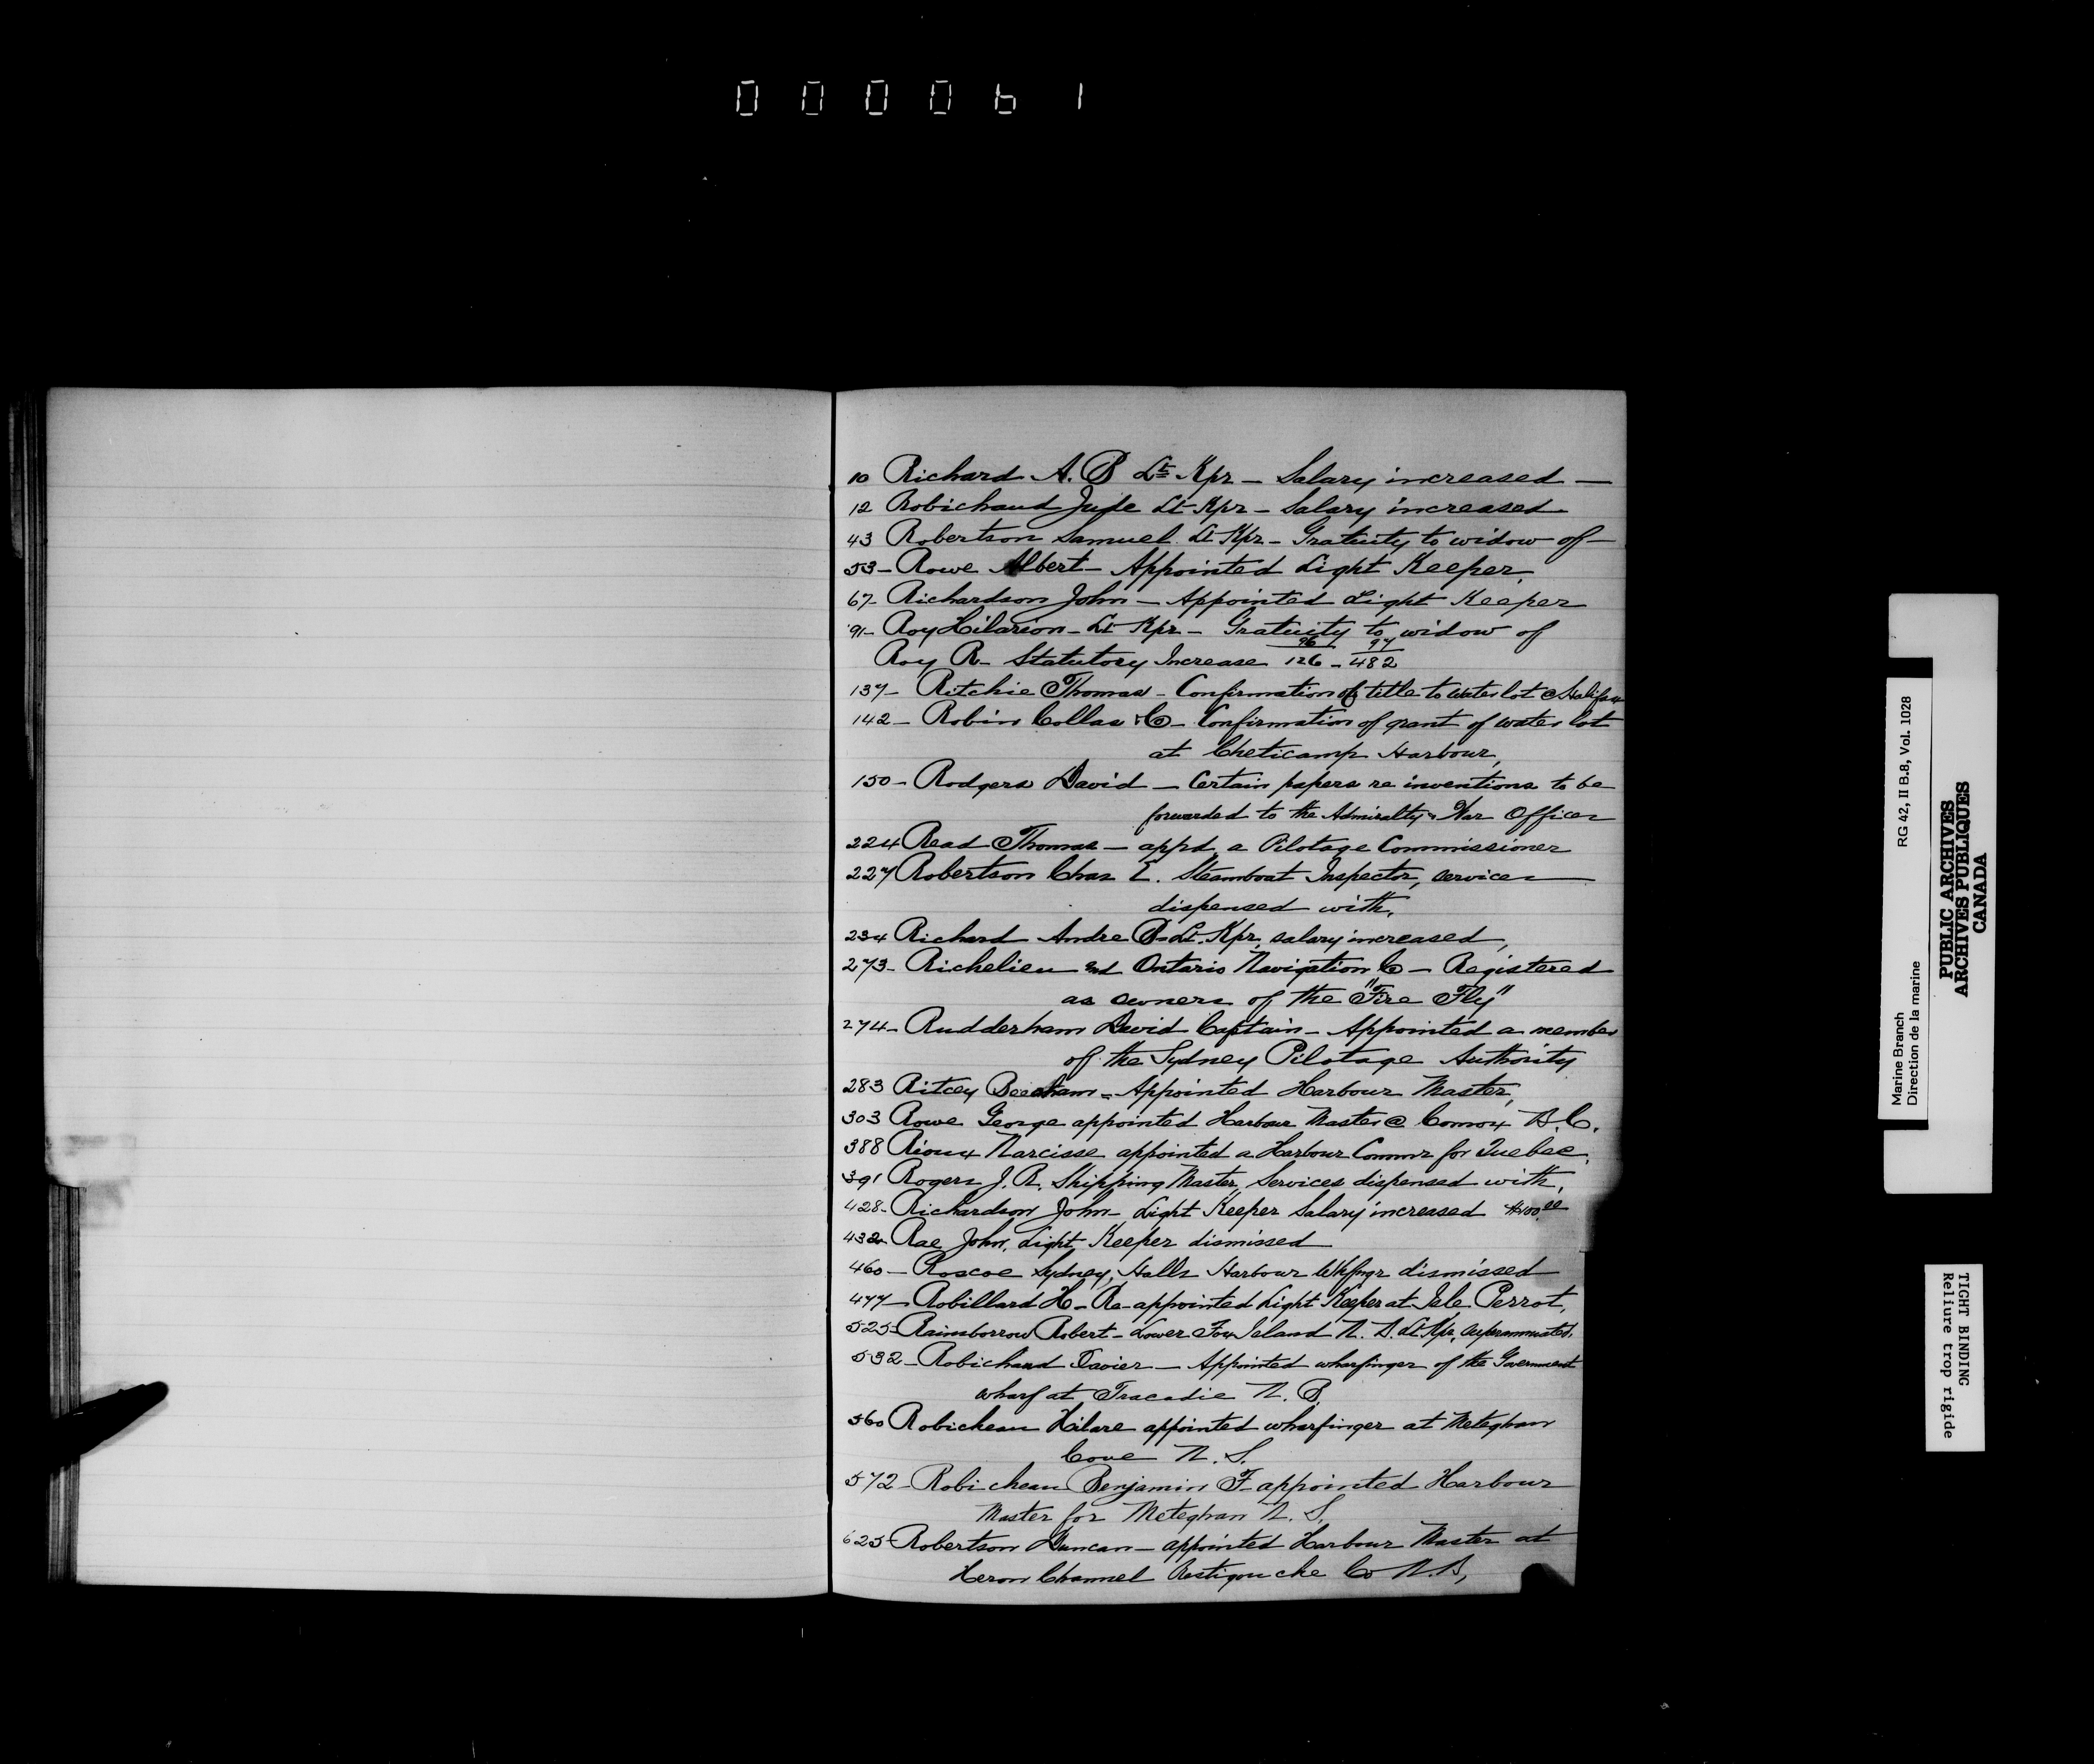 000061
10 Richard A. B Lt Kpr – Salary increased –
12 Robichaud Jude Lt Kpr – Salary increased
43 Robertson Samuel Lt Kpr – Gratuity to widow of –
53 – Rowe Albert – Appointed Light Keeper,
67 – Richardson John – Appointed Light Keeper
91 – Roy Hilarion – Lt Kpr – Gratuity to widow of
96 97
Roy R – Statutory Increase 126 – 482
137 – Ritchie Thomas – Confirmation of title to water lot @ Halifax
142 – Robin Collas & Co – Confirmation of grant of water lot
at Cheticamp Harbour,
150 – Rodgers David – Certain papers re inventions to be
forwarded to the Admiralty & War Offices
224 Read Thomas – appd a Pilotage Commissioner
227 Robertson Chas E. Steamboat Inspector, services
dispensed with,
234 Richard Andre B – Lt. Kpr, salary increased,
273 – Richelieu and Ontario Navigation Co – Registered
as owners of the "Fire Fly"
274 – Rudderham David Captain – Appointed a member
of the Sydney Pilotage Authority
283 Ritcey Beecham – Appointed Harbour Master,
303 Rowe George appointed Harbour Master @ Comox B.C.
388 Rioux Narcisse appointed a Harbour Commr for Quebec,
391 Rogers J. R. Shipping Master, Services dispensed with,
428 – Richardson John – Light Keeper Salary increased
432 Rae John, Light Keeper dismissed
460 – Roscoe Sydney, Halls Harbour Whfngr dismissed
477 – Robillard H – Re-appointed Light Keeper at Isle Perrot,
525 – Rainsborrow Robert – Lower Fox Island N. B. Lt Kpr, superannuated,
532 – Robichaud Xavier – Appointed wharfinger of the Government
wharf at Tracadie N. B,
560 Robicheau Hilare appointed wharfinger at Meteghan
Cove N. S.
572 – Robicheau Benjamin F appointed Harbour
Master for Meteghan N. S,
625 – Robertson Duncan – appointed Harbour Master at
Heron Channel Restigouche Co N.B,
Marine Branch RG 42, II B.8, Vol. 1028
Direction de la marine
PUBLIC ARCHIVES
ARCHIVES PUBLIQUES
CANADA
TIGHT BINDING
Reliure trop rigide